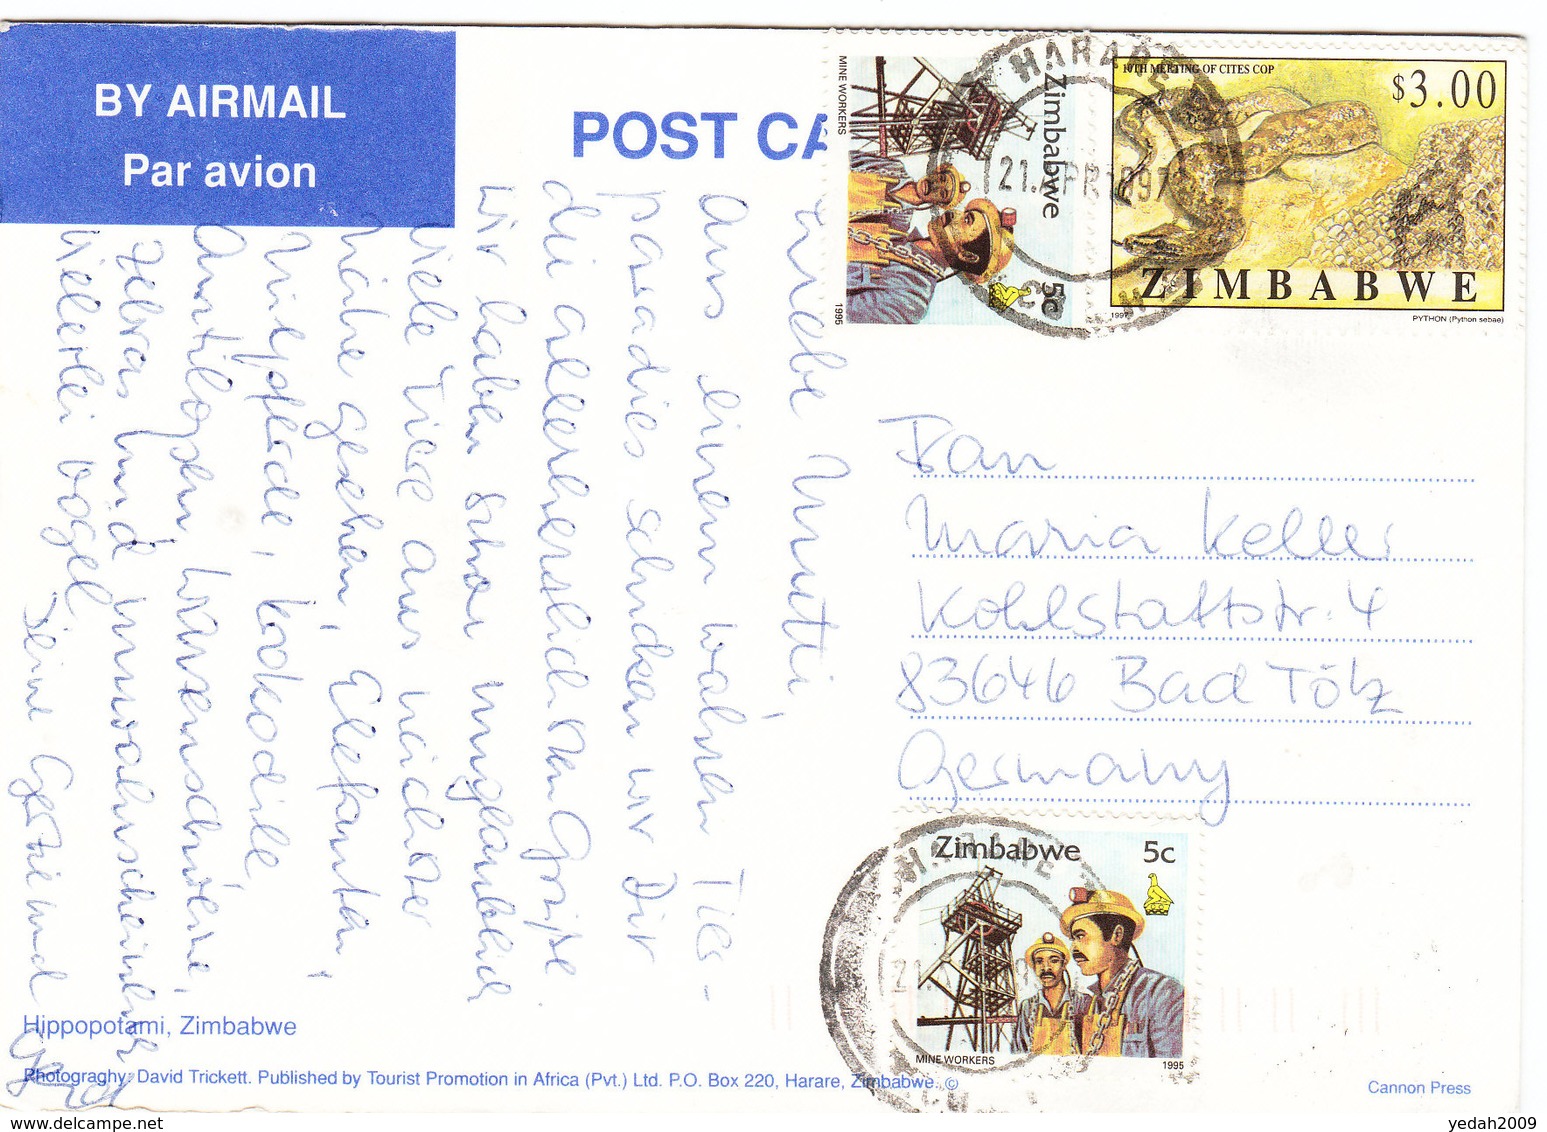 BY AIRMAIL
Par avion
POST CA
MINE WORKERS
Zimbabwe
5c
1995
HARARE
21. APR 1997
10TH MEETING OF CITES COP
$3.00
ZIMBABWE
1997
PYTHON (Python sebae)
Liebe Mutti,
aus einem wahren Tier-
paradies schicken wir Dir
die allerherzlichsten Grüße
Wir haben schon unglaublich
viele Tiere aus nächster
Nähe gesehen, Elefanten,
Nilpferde, Krokodile,
Antilopen, Warzenschweine,
Zebras und unwahrscheinlich
vielerlei Vögel.
Deine Gertie und
Gerd
Frau
Maria Keller
Kohlstattstr. 4
83646 Bad Tölz
Germany
HARARE
Zimbabwe
5c
21.
MINE WORKERS
1995
Hippopotami, Zimbabwe
Photograghy: David Trickett. Published by Tourist Promotion in Africa (Pvt.) Ltd. P.O. Box 220, Harare, Zimbabwe. ©
Cannon Press
www.delcampe.net
yedah2009